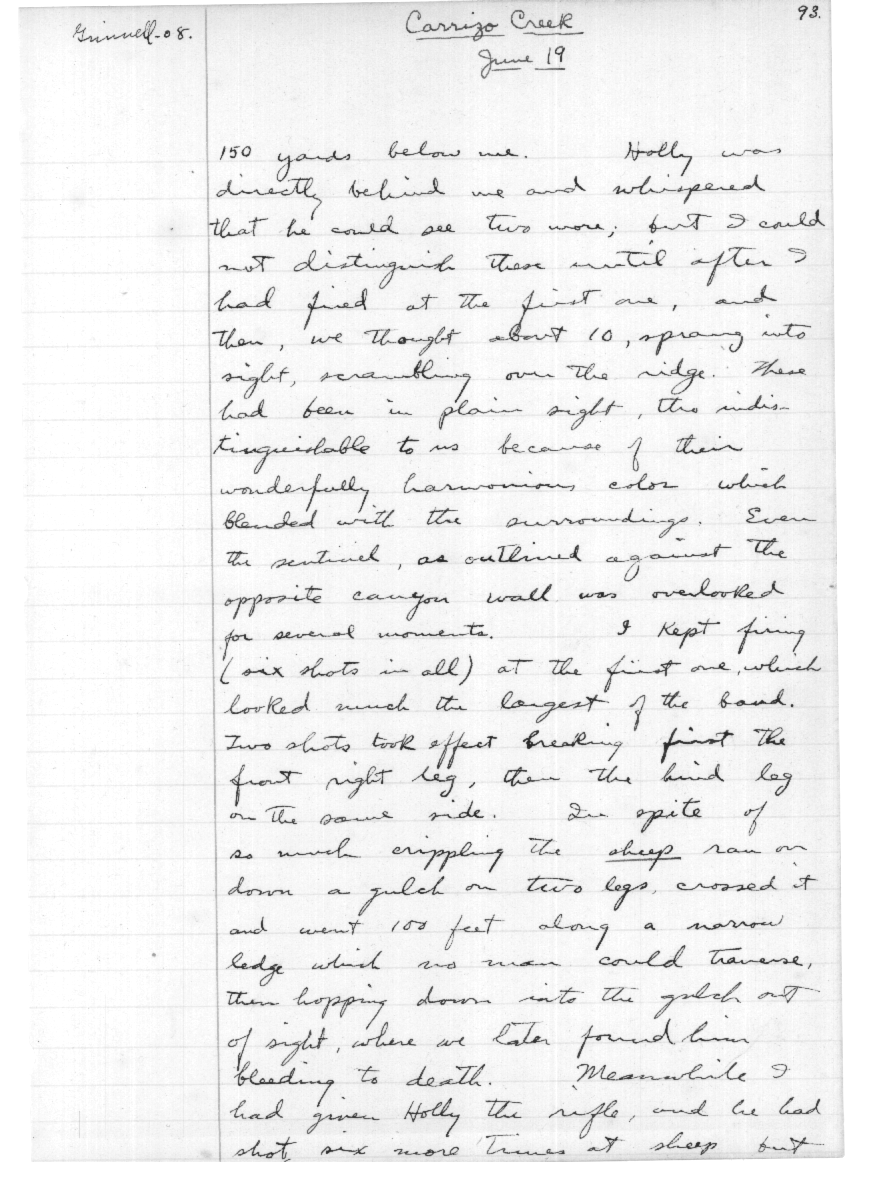 Grinnell-08.
Carrizo Creek
93.
June 19
150 yards below me. Holly was
directly behind me and whispered
that he could see two more; but I could
not distinguish these until after I
had fired at the first one, and
then, we thought about 10, sprang into
sight, scrambling over the ridge. These
had been in plain sight, tho indis-
tinguishable to us because of their
wonderfully harmonious color which
blended with the surroundings. Even
the sentinel, as outlined against the
opposite canyon wall was overlooked
for several moments. I kept firing
(six shots in all) at the first one, which
looked much the largest of the band.
Two shots took effect breaking first the
front right leg, then the hind leg
on the same side. In spite of
so much crippling the sheep ran on
down a gulch on two legs, crossed it
and went 100 feet along a narrow
ledge which no man could traverse,
then hopping down into the gulch out
of sight, where we later found him
bleeding to death. Meanwhile I
had given Holly the rifle, and he had
shot six more times at sheep but